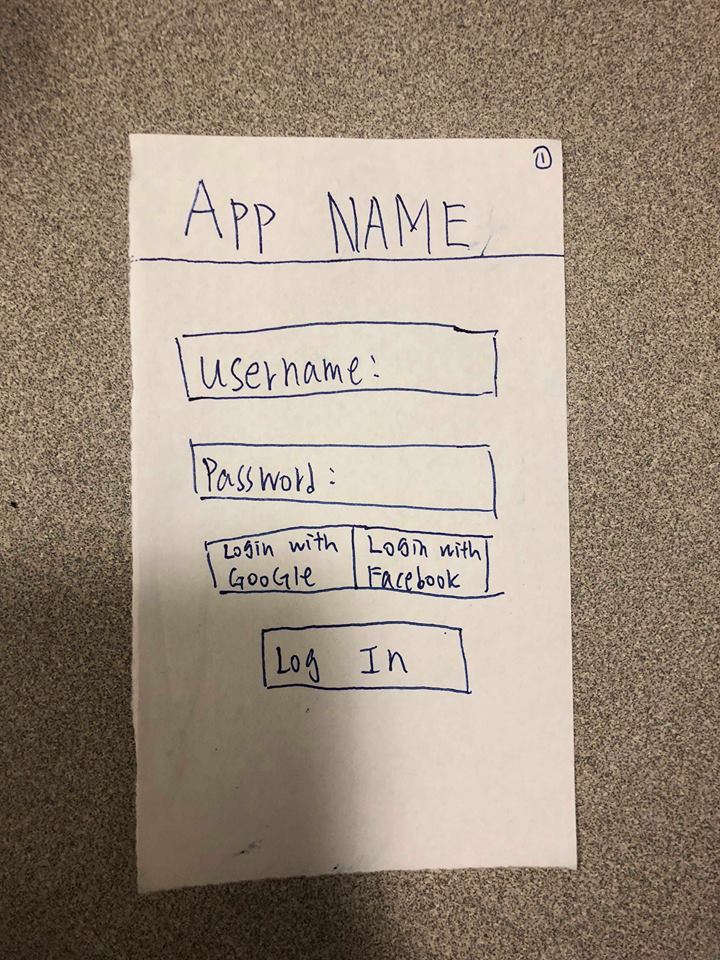 1
App NAME
Username:
Password:
Login with
GooGle
Login with
Facebook
Log In